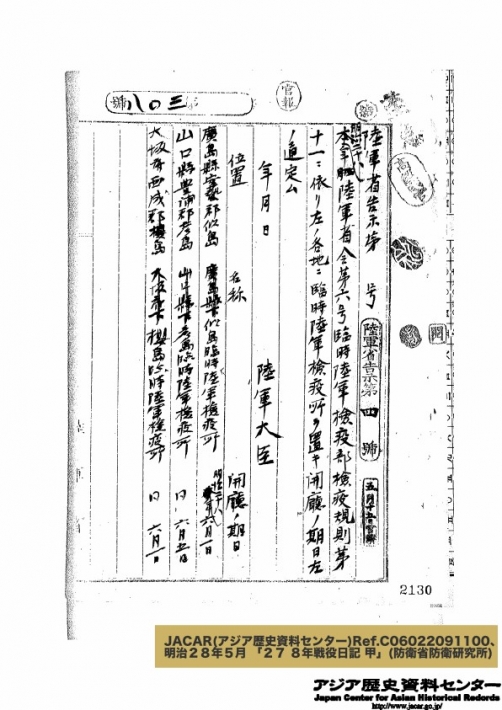 第三〇八號
官報
陸軍省告示第　号
陸軍省告示第四號
五月十五日官報
明治二十八年陸軍省令第六号臨時陸軍検疫部検疫規則第
十一ニ依リ左ノ各地ニ臨時陸軍検疫所ヲ置キ開廳ノ期日左
ノ通定ム
年月日
陸軍大臣
位置　名称　開廳ノ期日
廣島縣安藝郡似島　廣島縣下似島臨時陸軍檢疫所　明治二十八年六月一日
山口縣豊浦郡彦島　山口縣下彦島臨時陸軍檢疫所　同　六月五日
大坂府西成郡櫻島　大坂府下櫻島臨時陸軍檢疫所　同　六月一日
2130
JACAR(アジア歴史資料センター)Ref.C06022091100、
明治２８年５月 「２７ ８年戦役日記 甲」(防衛省防衛研究所)
アジア歴史資料センター
Japan Center for Asian Historical Records
http://www.jacar.go.jp/